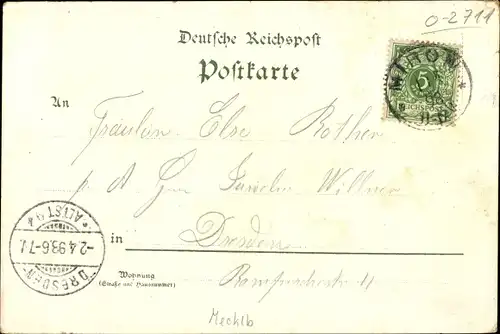 O-2711
Deutsche Reichspost
Postkarte
MIROW
5
REICHSPOST
An
Fräulein Else Rother
Willner
in Dresden
Wohnung
(Straße und Hausnummer)
ALTST. 9 4
-2 4 98 6-7
DRESDEN
Mecklb